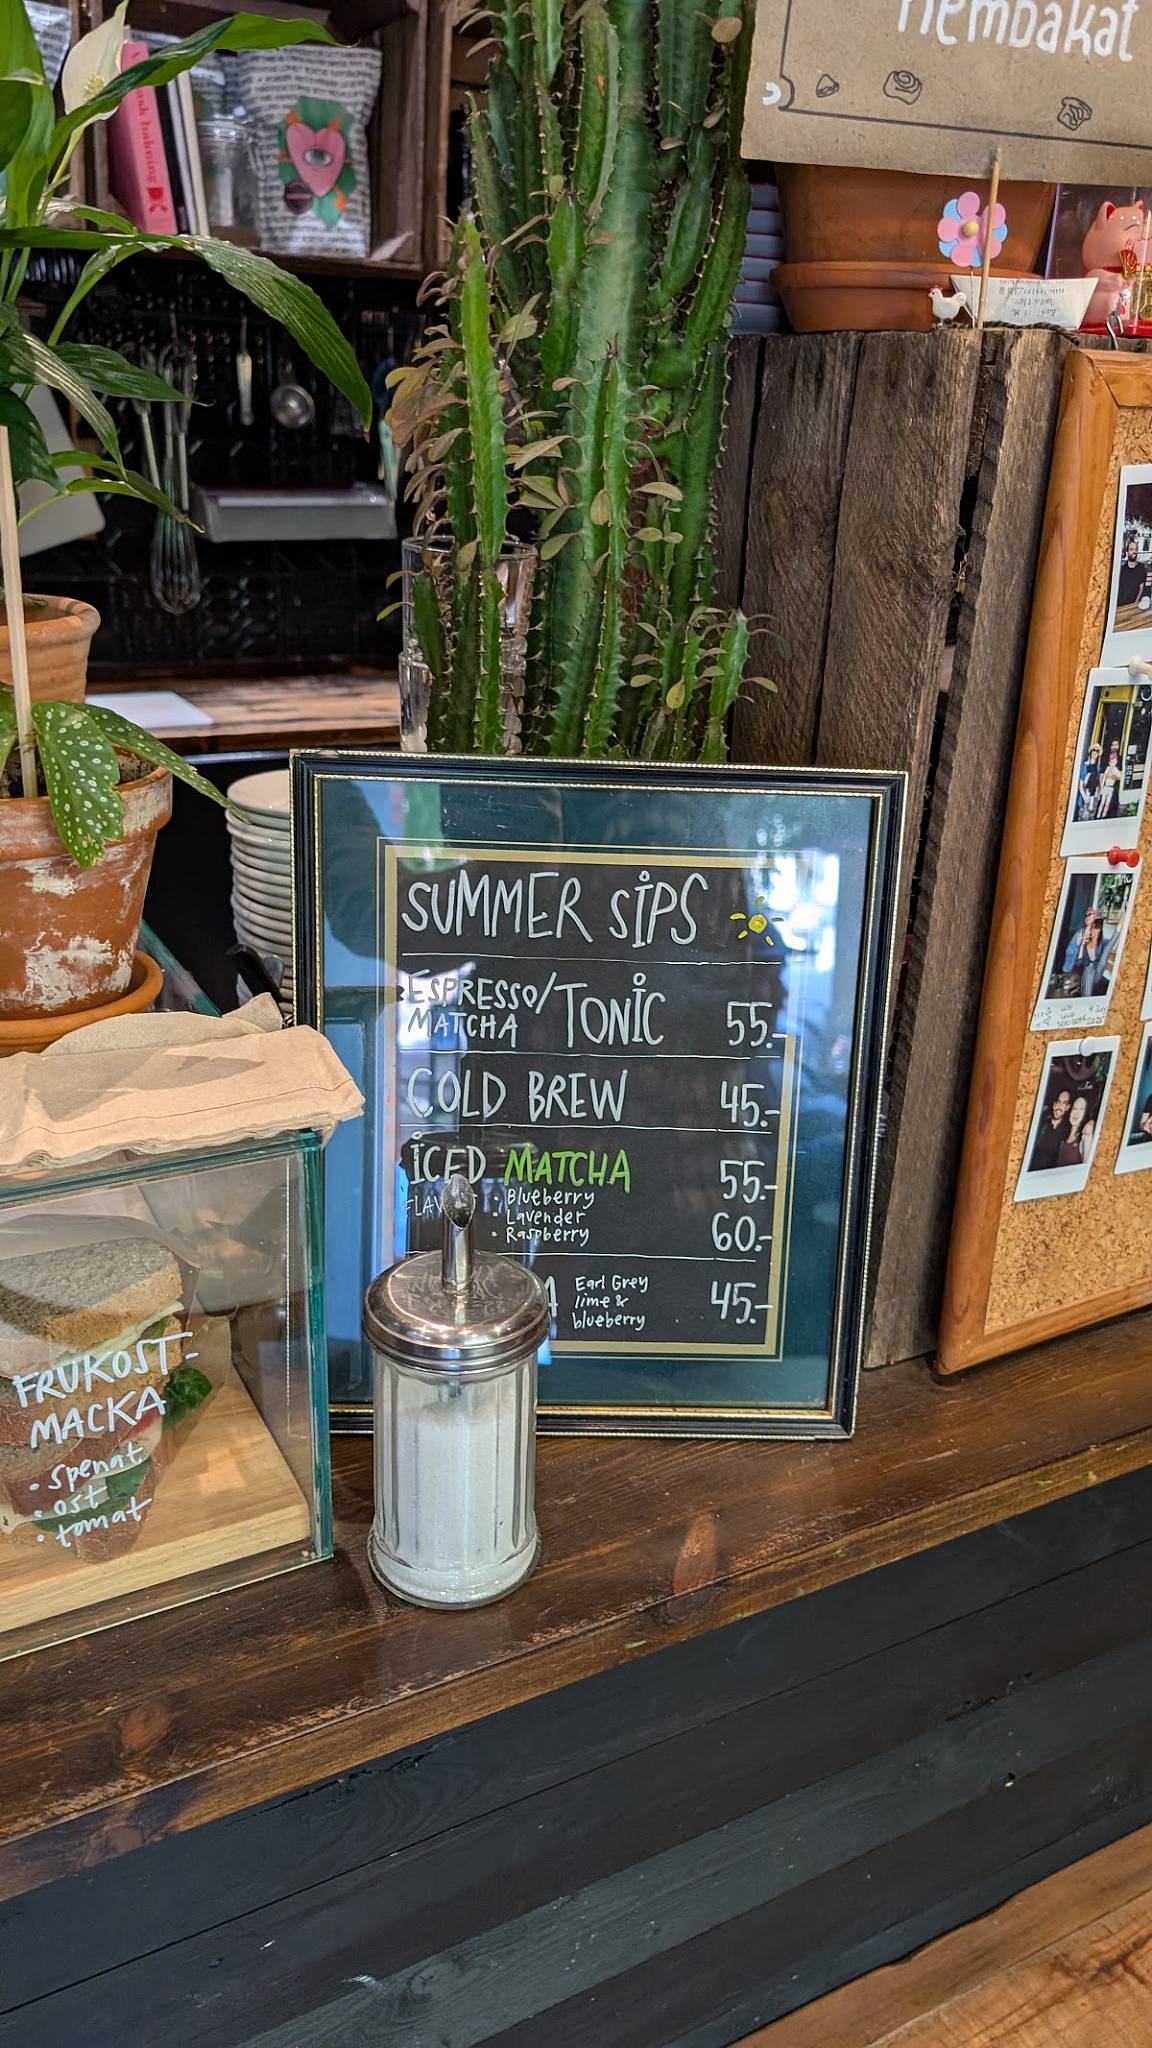 hembakat
SUMMER SIPS
ESPRESSO/
MATCHA TONIC 55.-
COLD BREW 45.-
ICED MATCHA 55.-
• Blueberry
• Lavender
• Raspberry 60.-
Earl Grey
lime &
blueberry 45.-
FRUKOST-
MACKA
• spenat
• ost
• tomat